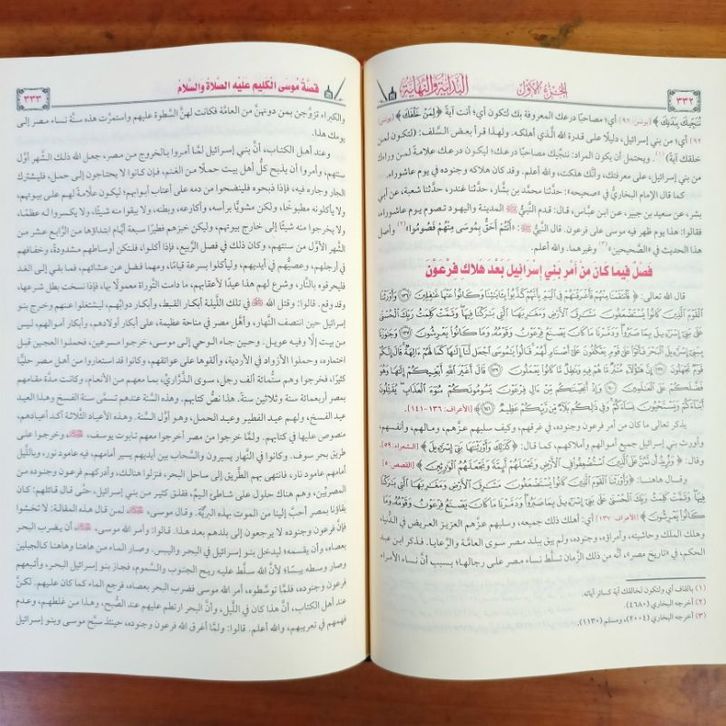 الجزء الأول
البداية والنهاية
٣٣٢
نُنَجِّيكَ بِبَدَنِكَ ﴾ [يونس: ٩٢] أي: مصاحبًا درعك المعروفة بك لتكون أي: أنت آية ﴿ لِمَنْ خَلْفَكَ ﴾ [يونس:
٩٢] أي: من بني إسرائيل، دليلًا على قدرة الله الذي أهلكه. ولهذا قرأ بعض السلف: (لتكون لمن
خلقك آية)(١). ويحتمل أن يكون المراد: ننجيك مصاحبًا درعك؛ ليكون درعك علامة لمن وراءك
من بني إسرائيل، على معرفتك، وأنَّك هلكت، والله أعلم. وقد كان هلاكه وجنوده في يوم عاشوراء.
كما قال الإمام البخاري في «صحيحه»: حدَّثنا محمَّد بن بشَّار، حدَّثنا غندر، حدَّثنا شعبة، عن أبي
بشر، عن سعيد بن جبير، عن ابن عبَّاس، قال: قدم النَّبي ﷺ المدينة واليهود تصوم يوم عاشوراء،
فقالوا: هذا يوم ظهر فيه موسى على فرعون. قال النَّبي ﷺ: «أَنْتُمْ أَحَقُّ بِمُوسَى مِنْهُمْ فَصُومُوا»(٢) وأصل
هذا الحديث في «الصَّحيحين»(٣) وغيرهما. والله أعلم.
فصل فيما كان من أمر بني إسرائيل بعد هلاك فرعون
قال الله تعالى: ﴿ فَانتَقَمْنَا مِنْهُمْ فَأَغْرَقْنَاهُمْ فِي الْيَمِّ بِأَنَّهُمْ كَذَّبُوا بِآيَاتِنَا وَكَانُوا عَنْهَا غَافِلِينَ (١٣٦) وَأَوْرَثْنَا
الْقَوْمَ الَّذِينَ كَانُوا يُسْتَضْعَفُونَ مَشَارِقَ الْأَرْضِ وَمَغَارِبَهَا الَّتِي بَارَكْنَا فِيهَا وَتَمَّتْ كَلِمَتُ رَبِّكَ الْحُسْنَى
عَلَى بَنِي إِسْرَائِيلَ بِمَا صَبَرُوا وَدَمَّرْنَا مَا كَانَ يَصْنَعُ فِرْعَوْنُ وَقَوْمُهُ وَمَا كَانُوا يَعْرِشُونَ (١٣٧) وَجَاوَزْنَا
بِبَنِي إِسْرَائِيلَ الْبَحْرَ فَأَتَوْا عَلَى قَوْمٍ يَعْكُفُونَ عَلَى أَصْنَامٍ لَهُمْ قَالُوا يَا مُوسَى اجْعَل لَنَا إِلَهًا كَمَا لَهُمْ آلِهَةٌ قَالَ إِنَّكُمْ
قَوْمٌ تَجْهَلُونَ (١٣٨) إِنَّ هَؤُلَاءِ مُتَبَّرٌ مَا هُمْ فِيهِ وَبَاطِلٌ مَا كَانُوا يَعْمَلُونَ (١٣٩) قَالَ أَغَيْرَ اللَّهِ أَبْغِيكُمْ إِلَهًا وَهُوَ
فَضَّلَكُمْ عَلَى الْعَالَمِينَ (١٤٠) وَإِذْ أَنجَيْنَاكُم مِنْ آلِ فِرْعَوْنَ يَسُومُونَكُمْ سُوءَ الْعَذَابِ يُقَتِّلُونَ
أَبْنَاءَكُمْ وَيَسْتَحْيُونَ نِسَاءَكُمْ وَفِي ذَلِكُم بَلَاءٌ مِن رَبِّكُمْ عَظِيمٌ (١٤١) ﴾ [الأعراف: ١٣٦-١٤١]
يذكر تعالى ما كان من أمر فرعون وجنوده، في غرقهم، وكيف سلبهم عزَّهم، ومالهم، وأنفسهم،
وأورث بني إسرائيل جميع أموالهم وأملاكهم، كما قال: ﴿ كَذَلِكَ وَأَوْرَثْنَاهَا بَنِي إِسْرَائِيلَ ﴾ [الشعراء: ٥٩].
وقال: ﴿ وَنُرِيدُ أَن نَّمُنَّ عَلَى الَّذِينَ اسْتُضْعِفُوا فِي الْأَرْضِ وَنَجْعَلَهُمْ أَئِمَّةً وَنَجْعَلَهُمُ الْوَارِثِينَ ﴾ [القصص: ٥]
وقال هاهنا: ﴿ وَأَوْرَثْنَا الْقَوْمَ الَّذِينَ كَانُوا يُسْتَضْعَفُونَ مَشَارِقَ الْأَرْضِ وَمَغَارِبَهَا الَّتِي بَارَكْنَا
فِيهَا وَتَمَّتْ كَلِمَتُ رَبِّكَ الْحُسْنَى عَلَى بَنِي إِسْرَائِيلَ بِمَا صَبَرُوا وَدَمَّرْنَا مَا كَانَ يَصْنَعُ فِرْعَوْنُ وَقَوْمُهُ وَمَا
كَانُوا يَعْرِشُونَ ﴾ [الأعراف: ١٣٧] أي: أهلك ذلك جميعه، وسلبهم عزَّهم العزيز العريض في الدُّنيا،
وهلك الملك وحاشيته، وأمراؤه، وجنوده، ولم يبق ببلد مصر سوى العامَّة والرَّعايا. فذكر ابن عبد
الحكم، في «تاريخ مصر»، أنَّه من ذلك الزمان تسلَّط نساء مصر على رجالها؛ بسبب أنَّ نساء الأمراء
(١) بالقاف أي ولتكون لخالقك آية كسائر آياته.
(٢) أخرجه البخاري (٤٦٨٠).
(٣) أخرجه البخاري (٢٠٠٤)، ومسلم (١١٣٠).
قصة موسى الكليم عليه الصلاة والسلام
٣٣٣
والكبراء تزوَّجن بمن دونهنَّ من العامَّة فكانت لهنَّ السَّطوة عليهم واستمرَّت هذه سنَّة نساء مصر إلى
يومك هذا.
وعند أهل الكتاب، أنَّ بني إسرائيل لمَّا أمروا بالخروج من مصر، جعل الله ذلك الشَّهر أوَّل
سنتهم، وأمروا أن يذبح كلُّ أهل بيت حملًا من الغنم، فإن كانوا لا يحتاجون إلى حمل، فليشترك
الجار وجاره فيه، فإذا ذبحوه فلينضحوا من دمه على أعتاب أبوابهم؛ ليكون علامة لهم على بيوتهم،
ولا يأكلونه مطبوخًا، ولكن مشويًّا برأسه، وأكارعه، وبطنه، ولا يبقوا منه شيئًا، ولا يكسروا له عظمًا،
ولا يخرجوا منه شيئًا إلى خارج بيوتهم، وليكن خبزهم فطيرًا سبعة أيَّام ابتداؤها من الرَّابع عشر من
الشَّهر الأوَّل من سنتهم، وكان ذلك في فصل الرَّبيع، فإذا أكلوا، فلتكن أوساطهم مشدودة، وخفافهم
في أرجلهم، وعصيُّهم في أيديهم، وليأكلوا بسرعة قيامًا، ومهما فضل عن عشائهم، فما بقي إلى الغد
فليحرقوه بالنَّار، وشرع لهم هذا عيدًا لأعقابهم، ما دامت التَّوراة معمولًا بها، فإذا نسخت بطل شرعها،
وقد وقع. قالوا: وقتل الله ﷻ في تلك اللَّيلة أبكار القبط، وأبكار دوابِّهم، ليشتغلوا عنهم وخرج بنو
إسرائيل حين انتصف النَّهار، وأهل مصر في مناحة عظيمة، على أبكار أولادهم، وأبكار أموالهم، ليس
من بيت إلَّا وفيه عويل. وحين جاء الوحي إلى موسى، خرجوا مسرعين، فحملوا العجين قبل
اختماره، وحملوا الأزواد في الأردية، وألقوها على عواتقهم، وكانوا قد استعاروا من أهل مصر حليًّا
كثيرًا، فخرجوا وهم ستُّمائة ألف رجل، سوى الذَّراري، بما معهم من الأنعام، وكانت مدَّة مقامهم
بمصر أربعمائة سنة وثلاثين سنة، هذا نصُّ كتابهم. وهذه السَّنة عندهم تسمَّى سنة الفسخ وهذا العيد
عيد الفسخ، ولهم عيد الفطير وعيد الحمل، وهو أوَّل السَّنة. وهذه الأعياد الثَّلاثة آكد أعيادهم،
منصوص عليها في كتابهم. ولمَّا خرجوا من مصر أخرجوا معهم تابوت يوسف، ﷺ، وخرجوا على
طريق بحر سوف. وكانوا في النَّهار يسيرون والسَّحاب بين أيديهم يسير أمامهم، فيه عامود نور، وباللَّيل
أمامهم عامود نار، فانتهى بهم الطَّريق إلى ساحل البحر، فنزلوا هنالك، وأدركهم فرعون وجنوده من
المصريِّين، وهم هناك حلول على شاطئ اليمِّ، فقلق كثير من بني إسرائيل، حتَّى قال قائلهم: كان
بقاؤنا بمصر أحبَّ إلينا من الموت بهذه البريَّة. وقال موسى، ﷺ، لمن قال هذه المقالة: لا تخشوا
فإنَّ فرعون وجنوده لا يرجعون إلى بلدهم بعد هذا. قالوا: وأمر الله موسى، ﷺ، أن يضرب البحر
بعصاه، وأن يقسمه؛ ليدخل بنو إسرائيل في البحر واليبس. وصار الماء من هاهنا وهاهنا كالجبلين
وصار وسطه يبسًا؛ لأنَّ الله سلَّط عليه ريح الجنوب والسَّموم، فجاز بنو إسرائيل البحر، وأتبعهم
فرعون وجنوده، فلمَّا توسَّطوه، أمر الله موسى فضرب البحر بعصاه، فرجع الماء كما كان عليهم. لكنْ
عند أهل الكتاب، أنَّ هذا كان في اللَّيل، وأنَّ البحر ارتطم عليهم عند الصُّبح، وهذا من غلطهم، وعدم
فهمهم في تعريبهم، والله أعلم. قالوا: ولمَّا أغرق الله فرعون وجنوده، حينئذ سبَّح موسى وبنو إسرائيل